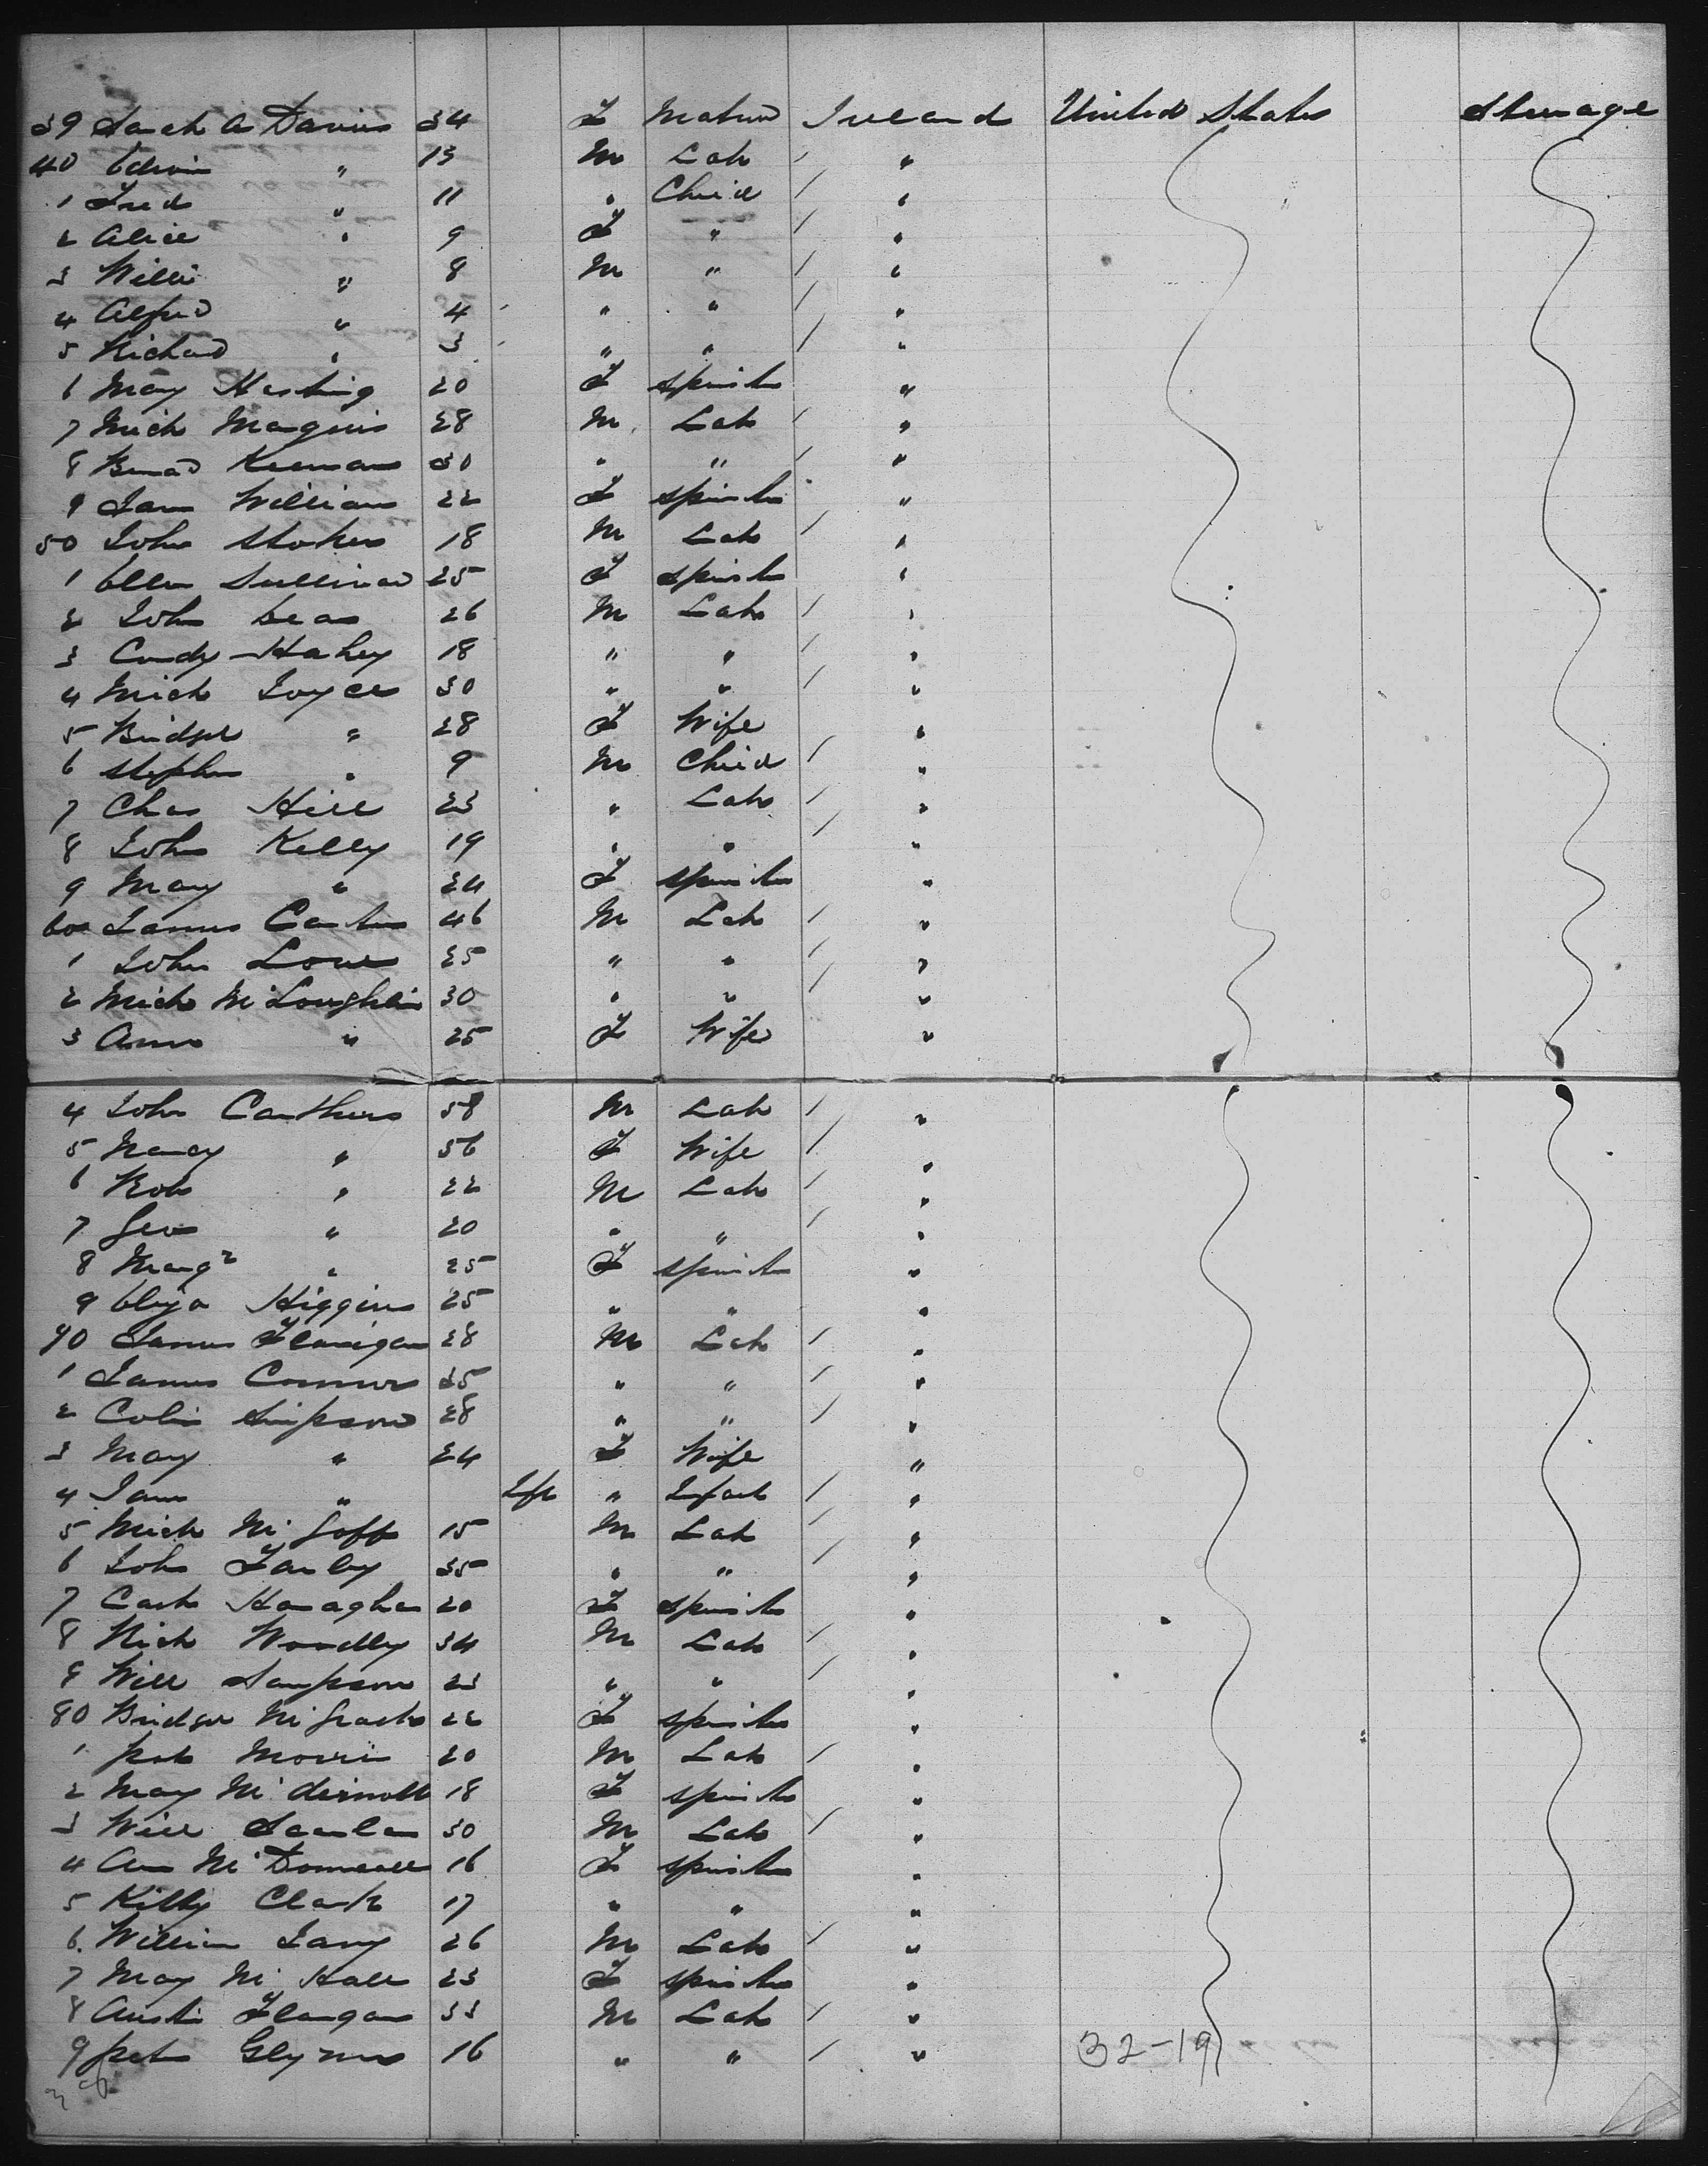 39 Sarah A Davies 34 F Matron Ireland United States Steerage
40 Edwin " 13 M Lab / "
1 Fred " 11 " Child / "
2 Alice " 9 F " / "
3 Willi " 8 M " / "
4 Alfred " 4 " " / "
5 Richard " 3 " " / "
6 Mary Hasting 20 F Spinster "
7 Mich Maguis 28 M Lab / "
8 Bernard Keenan 30 " " / "
9 Jane William 22 F Spinster "
50 John Stokes 18 M Lab / "
1 Ellen Sullivan 25 F Spinster "
2 John 26 M Lab / "
3 Condy Hahey 18 " " / "
4 Mich Joyce 30 " " / "
5 Bridget " 28 F Wife "
6 Stephen " 9 M Child / "
7 Chas Hill 23 " Lab / "
8 John Kelly 19 " " / "
9 Mary " 24 F Spinster "
60 James Carter 46 M Lab / "
1 John Lowe 25 " " / "
2 Mich McLoughlin 30 " " / "
3 Ann " 25 F Wife "
4 John Carthers 58 M Lab / "
5 Nancy " 56 F Wife / "
6 Rob " 22 M Lab / "
7 Geo " 20 " " / "
8 Margt " 25 F Spinster "
9 Eliza Higgins 25 " " "
70 James Flanigan 28 M Lab / "
1 James Connor 35 " " / "
2 Colin Simpson 28 " " / "
3 Mary " 24 F Wife "
4 Jane " Inft " Infant / "
5 Mich McGoff 15 M Lab / "
6 John Farley 35 " " / "
7 Cath Hanaghan 20 F Spinster "
8 Rich Woodley 34 M Lab / "
9 Will Sampson 23 " " / "
80 Bridget McGrath 22 F Spinster "
1 Pat Morris 20 M Lab / "
2 Mary McDermott 18 F Spinster "
3 Will Scanlan 30 M Lab / "
4 Ann McDonnell 16 F Spinster "
5 Kitty Clark 17 " " "
6 William 26 M Lab / "
7 Mary McHale 23 F Spinster "
8 Austin Flangan 33 M Lab / "
9 Pat Glynn 16 " " / " 32-19